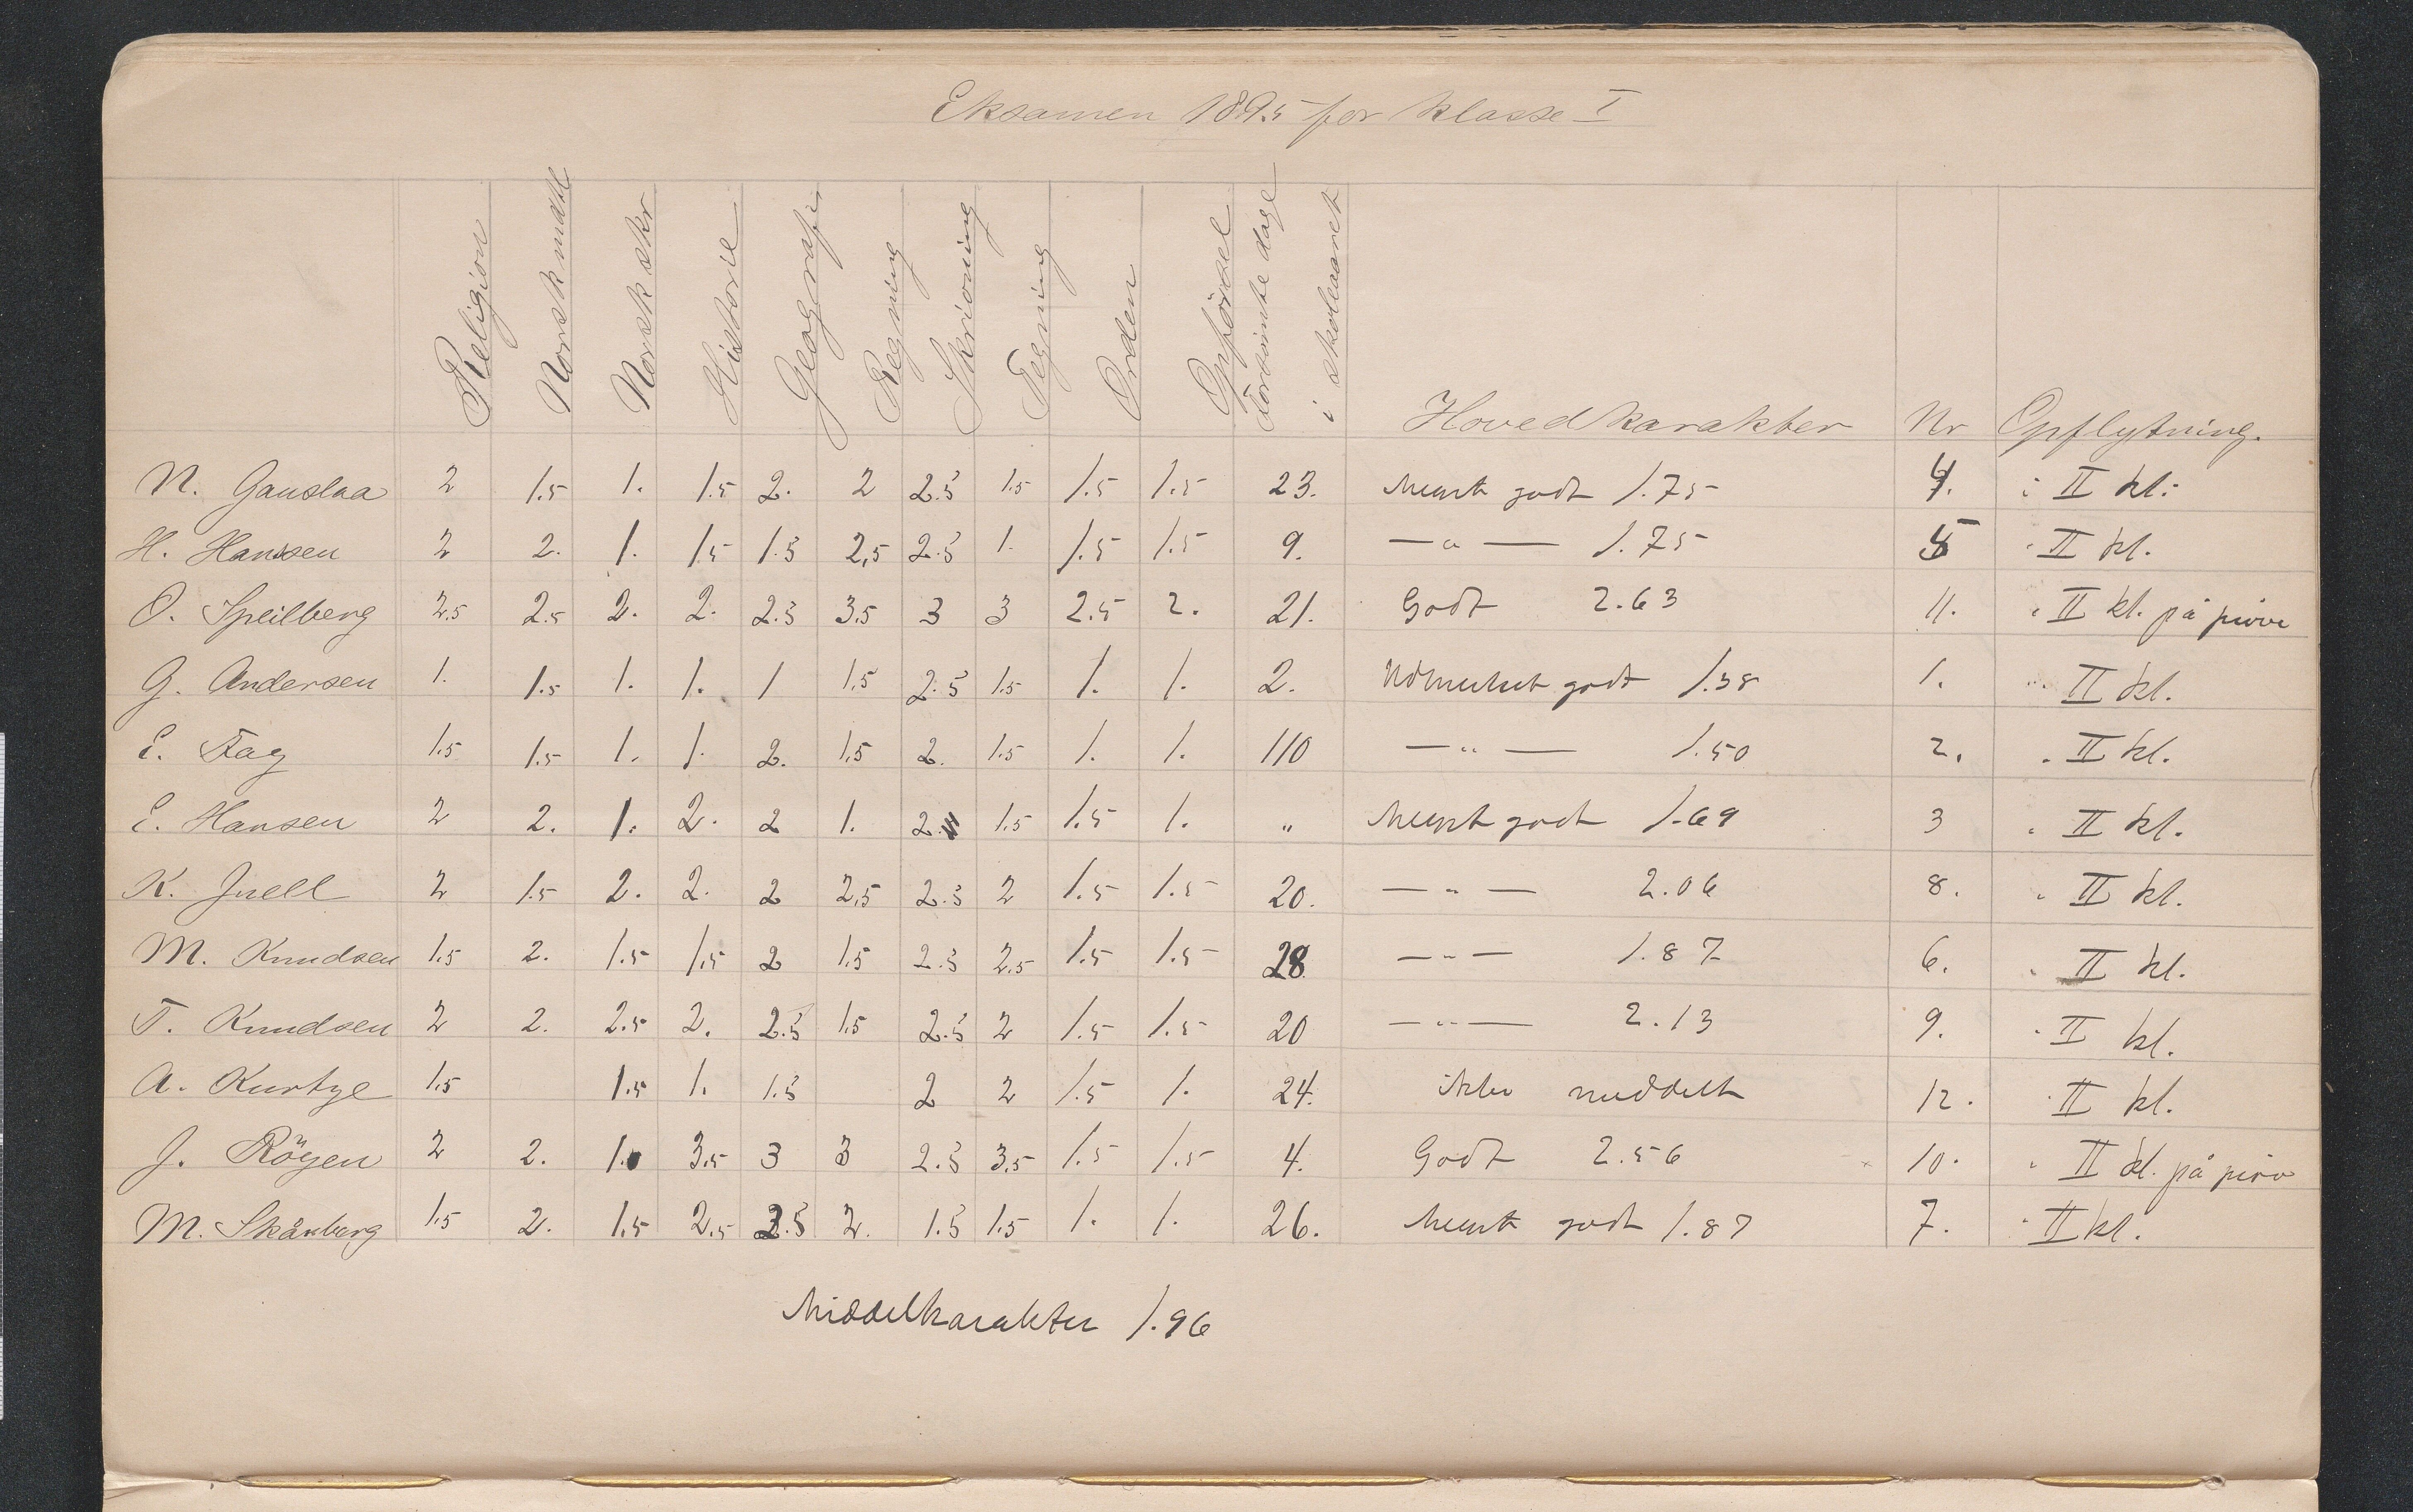 Eksamen 1895 for klasse I
Religion Norsk mdtl Norsk skr Historie Geografi Regning Skrivning Tegning Orden Opförsel Forsömte dage i skoleaaret Hovedkarakter Nr Opflytning.
N. Gauslaa 2 1.5 1. 1.5 2. 2 2.5 1.5 1.5 1.5 23. Meget godt 1.75 4. i II kl.
H. Hansen 2 2. 1. 1.5 1.5 2,5 2.5 1. 1.5 1.5 9. —"— 1.75 5 " II kl.
O. Speilberg 2.5 2.5 2. 2. 2.5 3.5 3 3 2.5 2. 21. Godt 2.63 11. " II kl. på pröve
G. Andersen 1. 1.5 1. 1. 1 1.5 2.5 1.5 1. 1. 2. Udmerket godt 1.38 1. " II kl.
E. Fag 1.5 1.5 1. 1. 2. 1.5 2. 1.5 1. 1. 110 —"— 1.50 2. " II kl.
E. Hansen 2 2. 1. 2. 2 1. 2. 1.5 1.5 1. " Meget godt 1.69 3 " II kl.
K. Juell 2 1.5 2. 2. 2 2,5 2.5 2 1.5 1.5 20. —"— 2.06 8. " II kl.
M. Knudsen 1.5 2. 1.5 1.5 2 1.5 2.5 2.5 1.5 1.5 28. —"— 1.87 6. " II kl.
T. Knudsen 2 2. 2.5 2. 2.5 1.5 2.5 2 1.5 1.5 20 —"— 2.13 9. " II kl.
A. Kurtze 1.5 1.5 1. 1.5 2 2 1.5 1. 24. ikke meddelt 12. " II kl.
J. Röyen 2 2. 1. 3.5 3 3 2.5 3.5 1.5 1.5 4. Godt 2.56 10. " II kl. på pröv
M. Skånberg 1.5 2. 1.5 2.5 2.5 2. 1.5 1.5 1. 1. 26. Meget godt 1.87 7. " II kl.
Middelkarakter 1.96